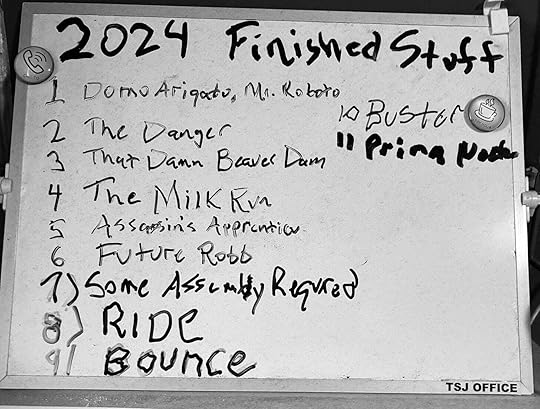 2024 Finished Stuff
1 Domo Arigato, Mr. Roboto
2 The Danger
3 That Damn Beaver Dam
4 The Milk Run
5 Assassin's Apprentice
6 Future Robb
7) Some Assembly Required
8) RIDE
9) BOUNCE
10 Buster
11 Prima
TSJ OFFICE